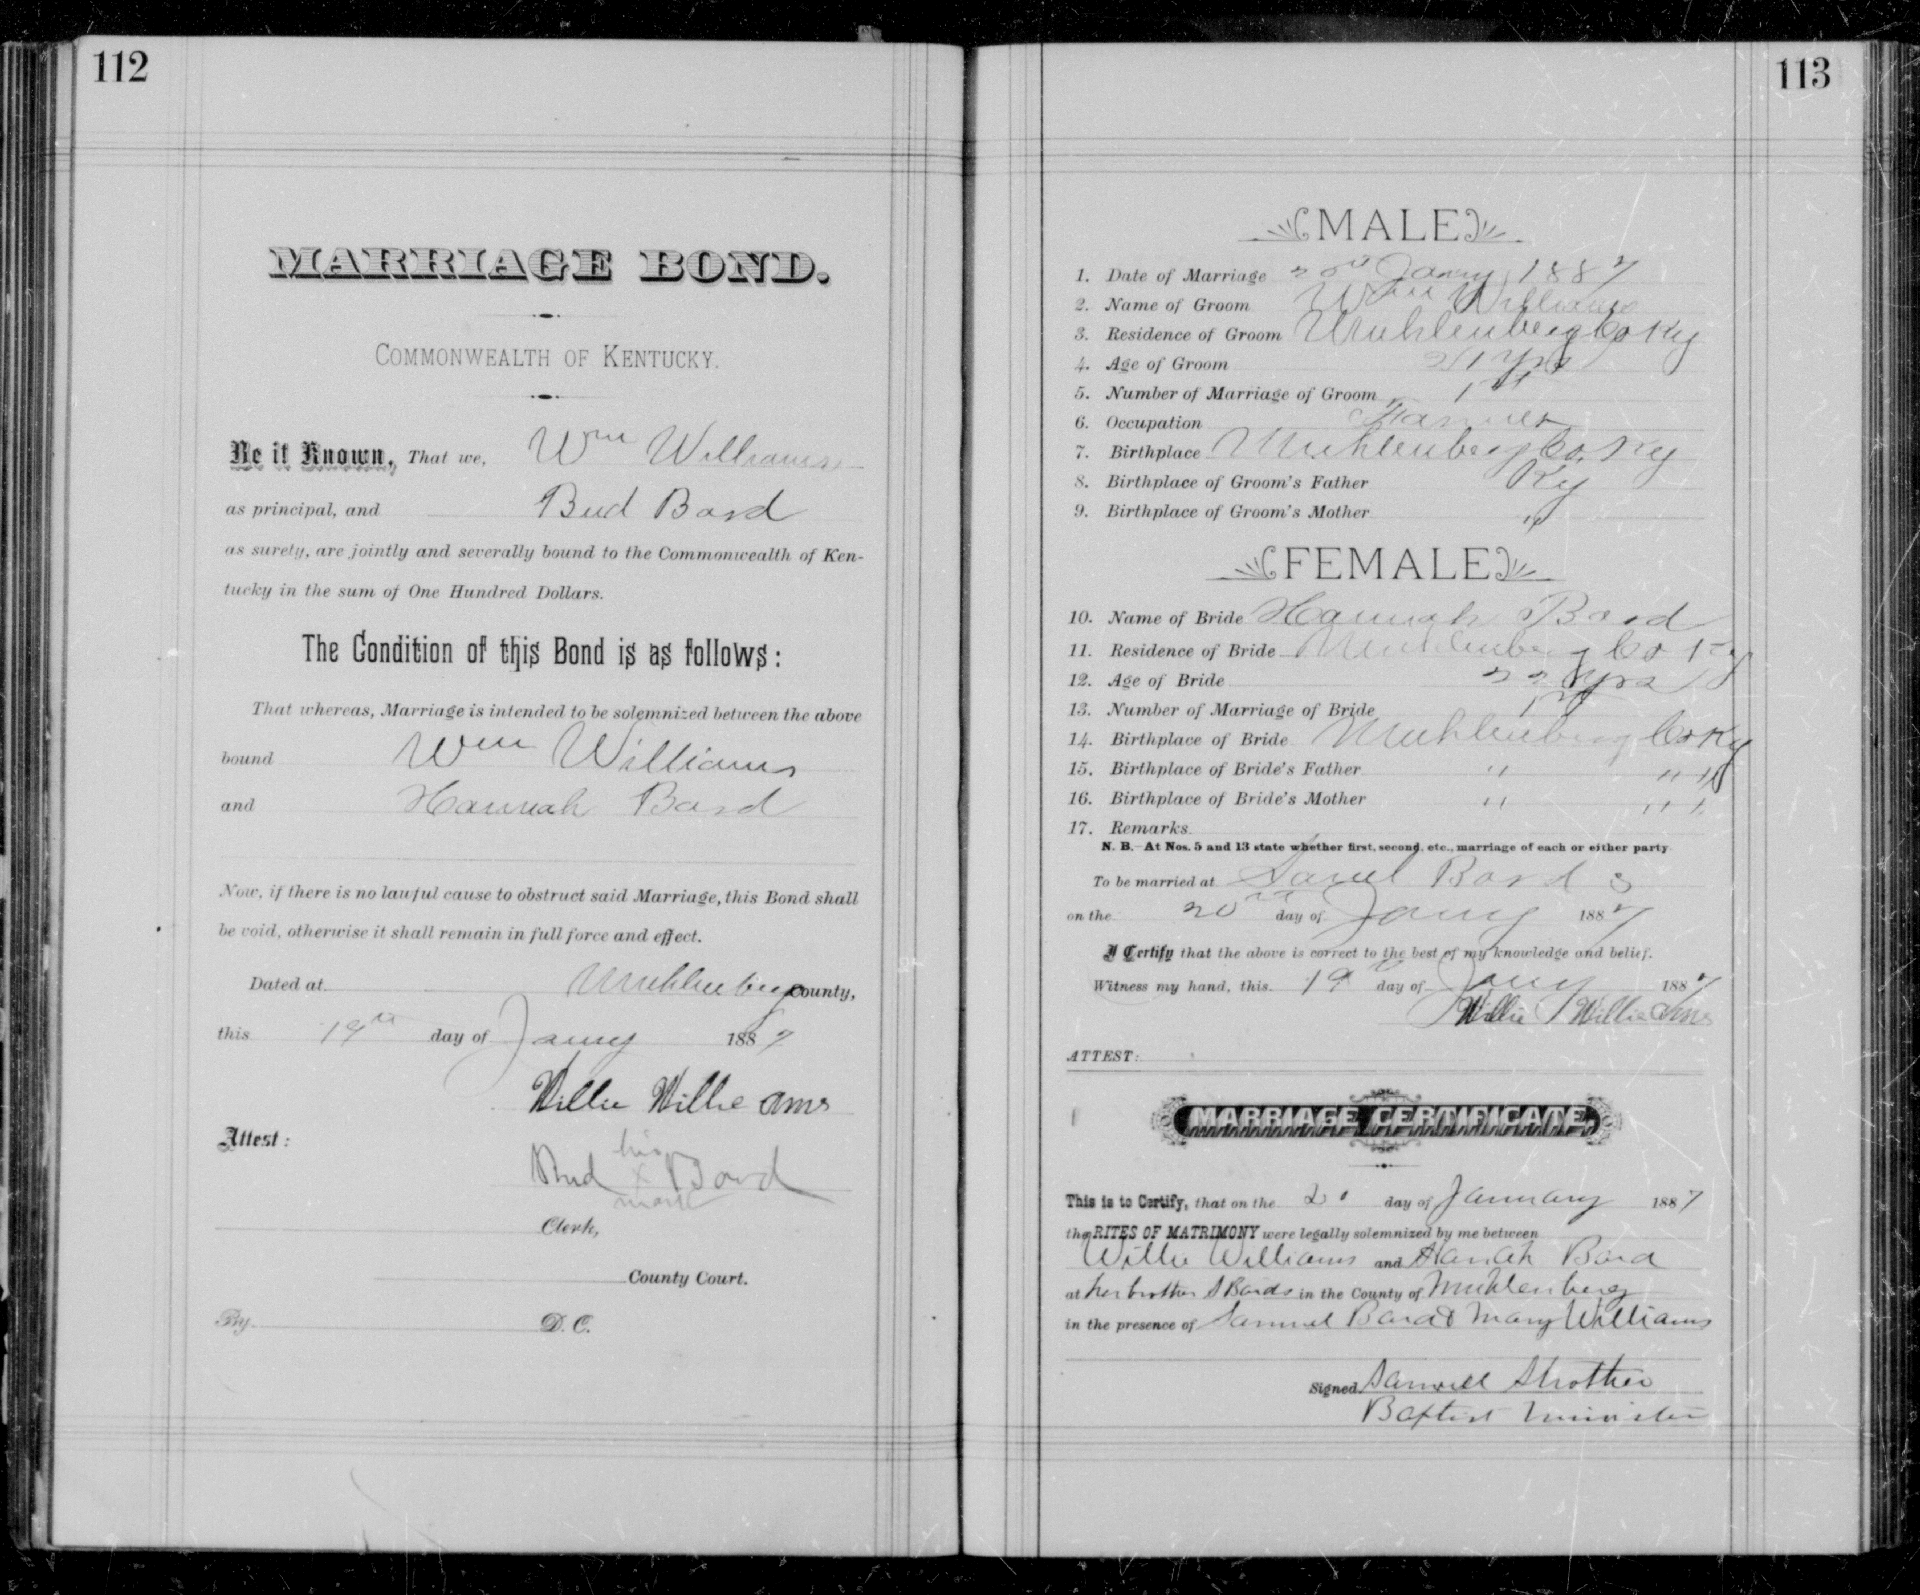 112
MARRIAGE BOND.
COMMONWEALTH OF KENTUCKY.
Be it Known, That we, Wm Williams
as principal, and Bud Bard
as surety, are jointly and severally bound to the Commonwealth of Ken-
tucky in the sum of One Hundred Dollars.
The Condition of this Bond is as follows:
That whereas, Marriage is intended to be solemnized between the above
bound Wm Williams
and Hannah Bard
Now, if there is no lawful cause to obstruct said Marriage, this Bond shall
be void, otherwise it shall remain in full force and effect.
Dated at Muhlenberg County,
this 19th day of Jany 1887
Willie Willie ams
Attest:
his
Bud x Bard
mark
Clerk,
County Court.
By D. C.
113
MALE
1. Date of Marriage 20th Jany 1887
2. Name of Groom Wm Williams
3. Residence of Groom Muhlenberg Co Ky
4. Age of Groom 21 yrs
5. Number of Marriage of Groom 1st
6. Occupation Farmer
7. Birthplace Muhlenberg Co. Ky
8. Birthplace of Groom's Father Ky
9. Birthplace of Groom's Mother "
FEMALE
10. Name of Bride Hannah Bard
11. Residence of Bride Muhlenberg Co Ky
12. Age of Bride 22 yrs
13. Number of Marriage of Bride 1st
14. Birthplace of Bride Muhlenberg Co Ky
15. Birthplace of Bride's Father " " "
16. Birthplace of Bride's Mother " " "
17. Remarks.
N. B.—At Nos. 5 and 13 state whether first, second, etc., marriage of each or either party
To be married at Saml Bard s
on the 20th day of Jany 1887
I Certify that the above is correct to the best of my knowledge and belief.
Witness my hand, this 19 day of Jany 1887
Willie Willie ams
ATTEST:
MARRIAGE CERTIFICATE.
This is to Certify, that on the 20 day of January 1887
the RITES OF MATRIMONY were legally solemnized by me between
Willie Williams and Hanah Bard
at her brother S Bards in the County of Muhlenberg
in the presence of Samuel Bard & Mary Williams
Signed Samuell Strother
Baptist minister